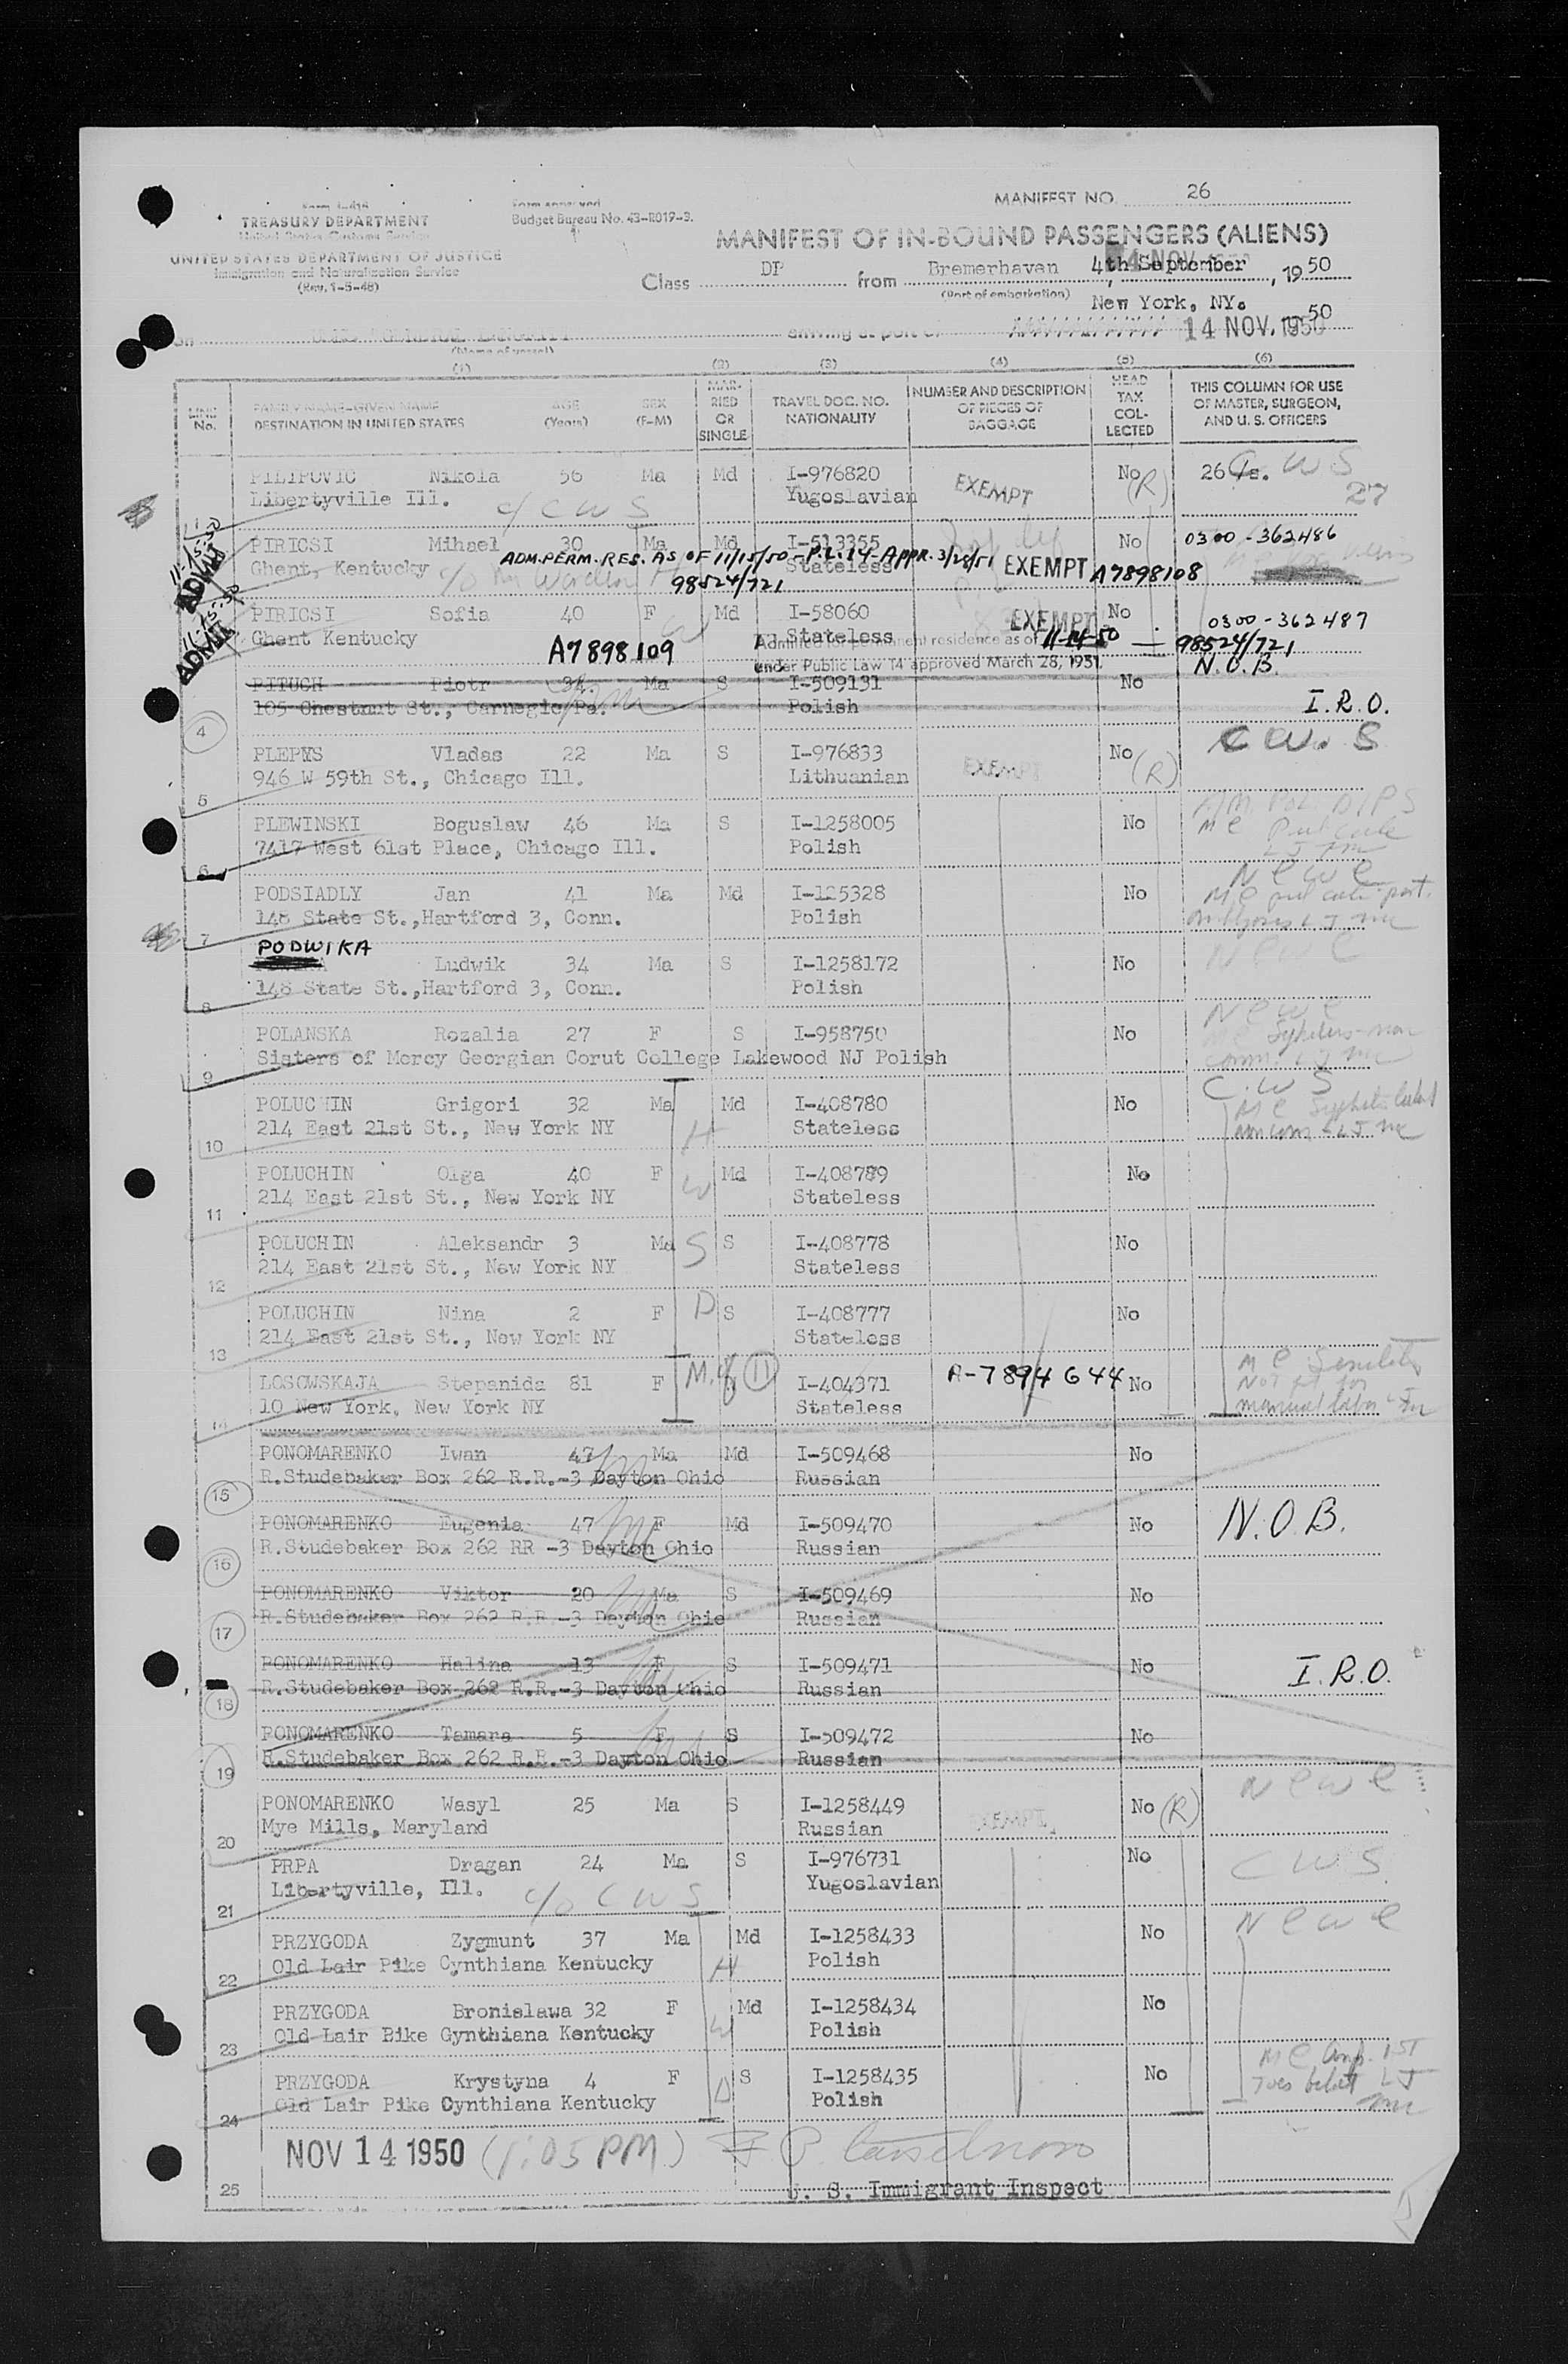 MANIFEST NO. 26
Form I-415
TREASURY DEPARTMENT
United States Customs Service
UNITED STATES DEPARTMENT OF JUSTICE
Immigration and Naturalization Service
(Rev. 1-5-48)
Form approved
Budget Bureau No. 43-R019-3.
MANIFEST OF IN-BOUND PASSENGERS (ALIENS)
Class DP from Bremerhaven 4th September , 19 50
(Port of embarkation)
New York, NY.
on arriving at port of 14 NOV. 1950 50
(Name of vessel)
(1) (2) (3) (4) (5) (6)
LINE No.
FAMILY NAME–GIVEN NAME AGE SEX
DESTINATION IN UNITED STATES (Years) (F–M)
MAR-RIED OR SINGLE
TRAVEL DOC. NO. NATIONALITY
NUMBER AND DESCRIPTION OF PIECES OF BAGGAGE
HEAD TAX COL-LECTED
THIS COLUMN FOR USE OF MASTER, SURGEON, AND U. S. OFFICERS
PILIPOVIC Nikola 56 Ma Md I-976820 EXEMPT No (R) 26 C W S
Libertyville Ill. c/ C W S Yugoslavian 27
PIRICSI Mihael 30 Ma Md I-513355 No 0300-362486
ADM. PERM. RES. AS OF 11/15/50 - P.L. 14 - APPR. 3/28/51
Ghent, Kentucky Stateless EXEMPT A7898108
98524/721
11-15-50 ADMIT
PIRICSI Sofia 40 F W Md I-58060 EXEMPT No 0300-362487
Ghent Kentucky Stateless
A7898109
Admitted for permanent residence as of 11-14-50 — 98524/721
under Public Law 14 approved March 28, 1951.
11-15-50 ADMIT
N.O.B.
PITUCH Piotr 34 Ma S I-509131 No
105 Chestnut St., Carnegie Pa. Polish I.R.O.
4
PLEPYS Vladas 22 Ma S I-976833 No (R) C W. S
946 W 59th St., Chicago Ill. Lithuanian EXEMPT
5
PLEWINSKI Boguslaw 46 Ma S I-1258005 No
7417 West 61st Place, Chicago Ill. Polish
6
N C W C
PODSIADLY Jan 41 Ma Md I-125328 No
148 State St.,Hartford 3, Conn. Polish
7
PODWIKA
Ludwik 34 Ma S I-1258172 No N C W C
148 State St.,Hartford 3, Conn. Polish
8
N C W C
POLANSKA Rozalia 27 F S I-958750 No
Sisters of Mercy Georgian Corut College Lakewood NJ Polish
9
C. W S
POLUCHIN Grigori 32 Ma Md I-408780 No
214 East 21st St., New York NY H Stateless
10
POLUCHIN Olga 40 F W Md I-408789 No
214 East 21st St., New York NY Stateless
11
POLUCHIN Aleksandr 3 Ma S S I-408778 No
214 East 21st St., New York NY Stateless
12
POLUCHIN Nina 2 F D S I-408777 No
214 East 21st St., New York NY Stateless
13
LOSOWSKAJA Stepanida 81 F M. of 11 I-404371 A-7894644 No
10 New York, New York NY Stateless
M C Senility
Not fit for
manual labor
14
PONOMARENKO Iwan 47 Ma Md I-509468 No
R.Studebaker Box 262 R.R.-3 Dayton Ohio Russian
15
PONOMARENKO Eugenia 47 F Md I-509470 No N.O.B.
R.Studebaker Box 262 RR -3 Dayton Ohio Russian
16
PONOMARENKO Viktor 20 Ma S I-509469 No
R.Studebaker Box 262 R.R.-3 Dayton Ohio Russian
17
PONOMARENKO Halina 13 F S I-509471 No I.R.O.
R.Studebaker Box 262 R.R.-3 Dayton Ohio Russian
18
PONOMARENKO Tamara 5 F S I-509472 No
R.Studebaker Box 262 R.R.-3 Dayton Ohio Russian
19
N C W C
PONOMARENKO Wasyl 25 Ma S I-1258449 No (R)
Mye Mills, Maryland Russian EXEMPT
20
PRPA Dragan 24 Ma S I-976731 No C W S
Libertyville, Ill. c/o C W S Yugoslavian
21
N C W C
PRZYGODA Zygmunt 37 Ma Md I-1258433 No
Old Lair Pike Cynthiana Kentucky H Polish
22
PRZYGODA Bronislawa 32 F Md I-1258434 No
Old Lair Bike Gynthiana Kentucky W Polish
23
PRZYGODA Krystyna 4 F D S I-1258435 No
Old Lair Pike Cynthiana Kentucky Polish
24
NOV 14 1950 (1:05 PM)
25 U. S. Immigrant Inspect